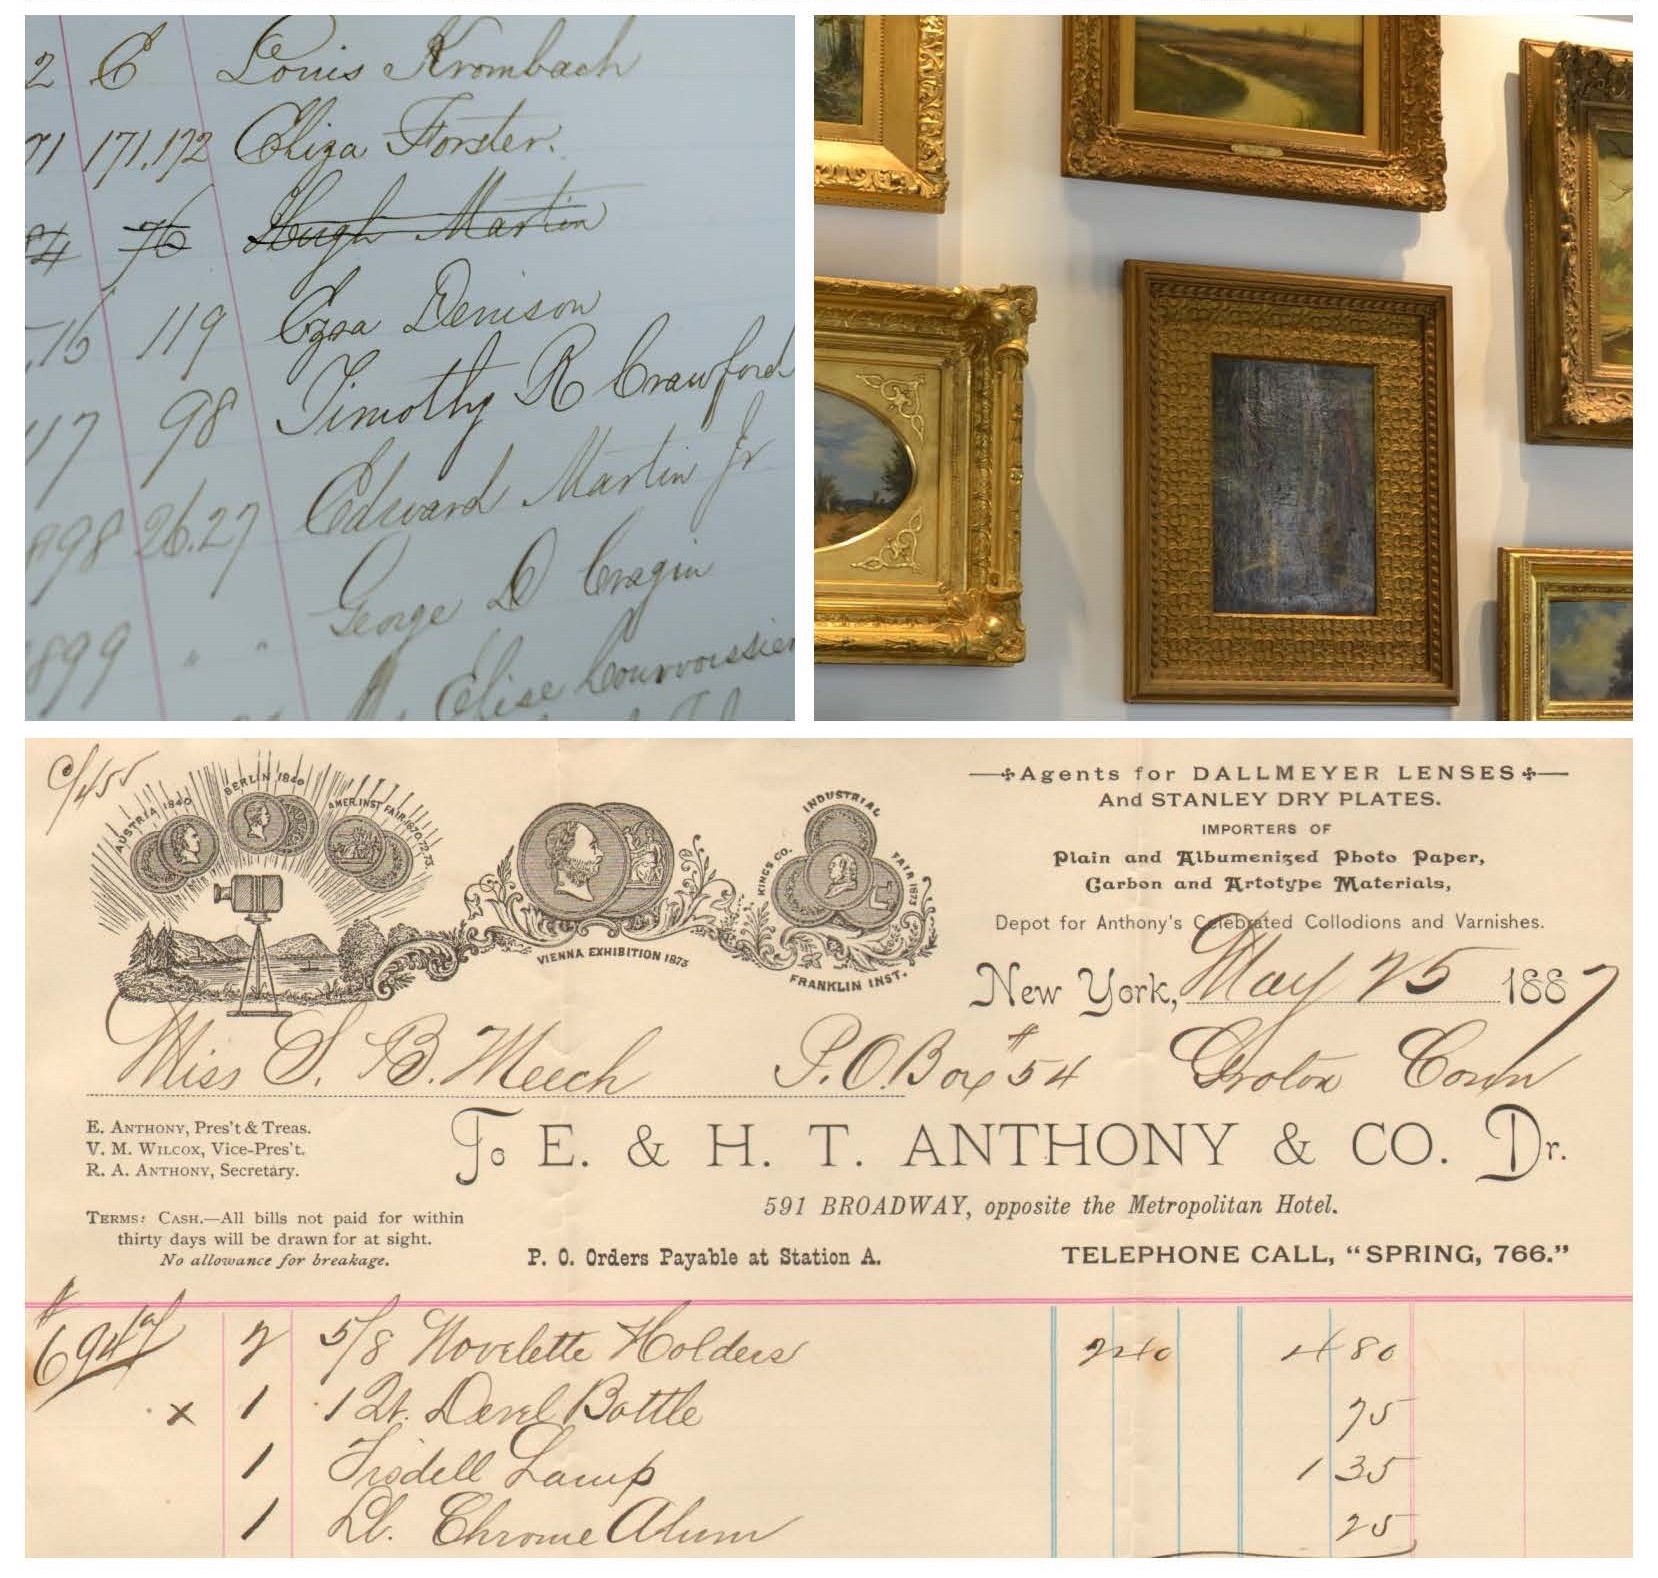 2 C Louis Krombach
71 171.172 Eliza Forster.
84 76 Hugh Martin
16 119 Ezra Denison
117 98 Timothy R Crawford
898 26.27 Edward Martin Jr
899 " " George D Cragin
Elise Courvoissier
C/455
AUSTRIA 1840
BERLIN 1840
AMER. INST FAIR 1870.72.73
VIENNA EXHIBITION 1873
KINGS CO.
INDUSTRIAL
FAIR 1873
FRANKLIN INST.
Agents for DALLMEYER LENSES
And STANLEY DRY PLATES.
IMPORTERS OF
Plain and Albumenized Photo Paper,
Carbon and Artotype Materials,
Depot for Anthony's Celebrated Collodions and Varnishes.
New York, May 25 1887
Miss S. B. Meech P.O. Box #54 Groton Conn
E. ANTHONY, Pres't & Treas.
V. M. WILCOX, Vice-Pres't.
R. A. ANTHONY, Secretary.
To E. & H. T. ANTHONY & CO. Dr.
591 BROADWAY, opposite the Metropolitan Hotel.
TERMS: CASH.—All bills not paid for within
thirty days will be drawn for at sight.
No allowance for breakage.
P. O. Orders Payable at Station A.
TELEPHONE CALL, "SPRING, 766."
2 5/8 Novelette Holders 240 480
x 1 1 Qt. Devel Bottle 75
1 Lamp 1 35
1 Lb. Chrome Alum 25